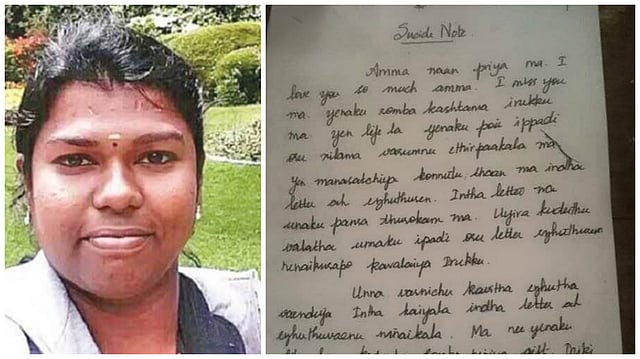 Sucide Note
Amma naan priya ma. I
love you so much amma. I miss you
ma. yenaku romba kashtama irukku
ma. yen life la yenaku poi ippadi
oru nilama varumnu ethirpaakala ma
yen manasatchiya konnutu thaan ma indha
letter ah ezhuthuren. Intha letter na
unaku panra thurokam ma. Uyira kuduthu
valatha umaku ipadi oru letter ezhuthuren
nenaikurapo kavalaiya Irukku.
Unna varnichu kavitha ezhutha
vaendiya Intha kaiyala indha letter ah
ezhuthuvaenu ninaikala. Ma nee yenaku